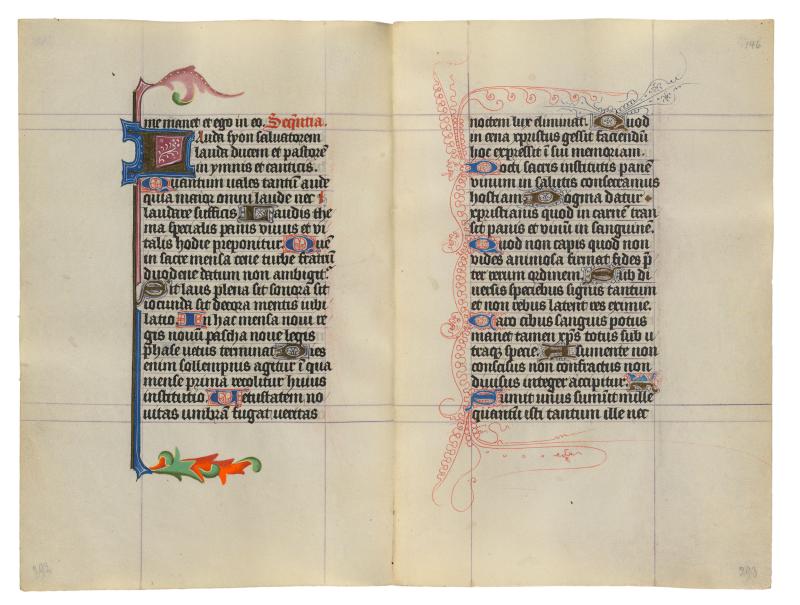 me manet et ego in eo. Sequētia.
Lauda syon saluatorem
lauda ducem et pastorē
in ymnis et canticis.
Quantum uales tantū aude
quia maior omni laude nec
laudare sufficis Laudis the
ma specialis panis viuus et vi
talis hodie preponitur. Quē
in sacre mensa cene turbe fratrū
duodene datum non ambigit.
Sit laus plena sit sonora sit
iocunda sit decora mentis iubi
latio In hac mensa noui re
gis nouū pascha noue legis
phase uetus terminat Dies
enim sollempnis agitur ī qua
mense prima recolitur huius
institutio. Vetustatem no
uitas umbrā fugat veritas
146
noctem lux eliminat. Quod
in cena xpristus gessit faciendū
hoc expressit ī sui memoriam.
Docti sacris institutis panē
vinum in salutis consecramus
hostiam Dogma datur
xpristianis quod in carnē tran
sit panis et vinū in sanguinē.
Quod non capis quod non
vides animosa firmat fides p̄
ter rerum ordinem. Sub di
uersis speciebus signis tantum
et non rebus latent res eximie.
Caro cibus sanguis potus
manet tamen xp̄s totus sub u
traq; specie. A sumente non
conscisus non confractus non
diuisus integer accipitur.
Sumit unus sumūt mille
quantū isti tantum ille nec
292
293